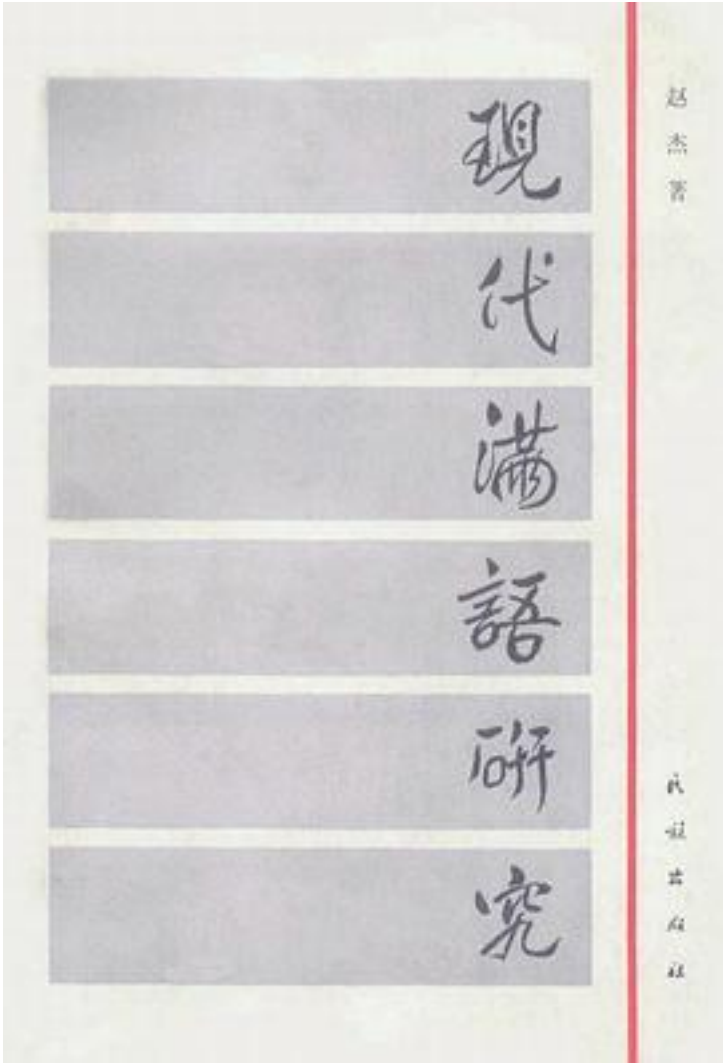 現代滿語研究
赵杰著
民族出版社